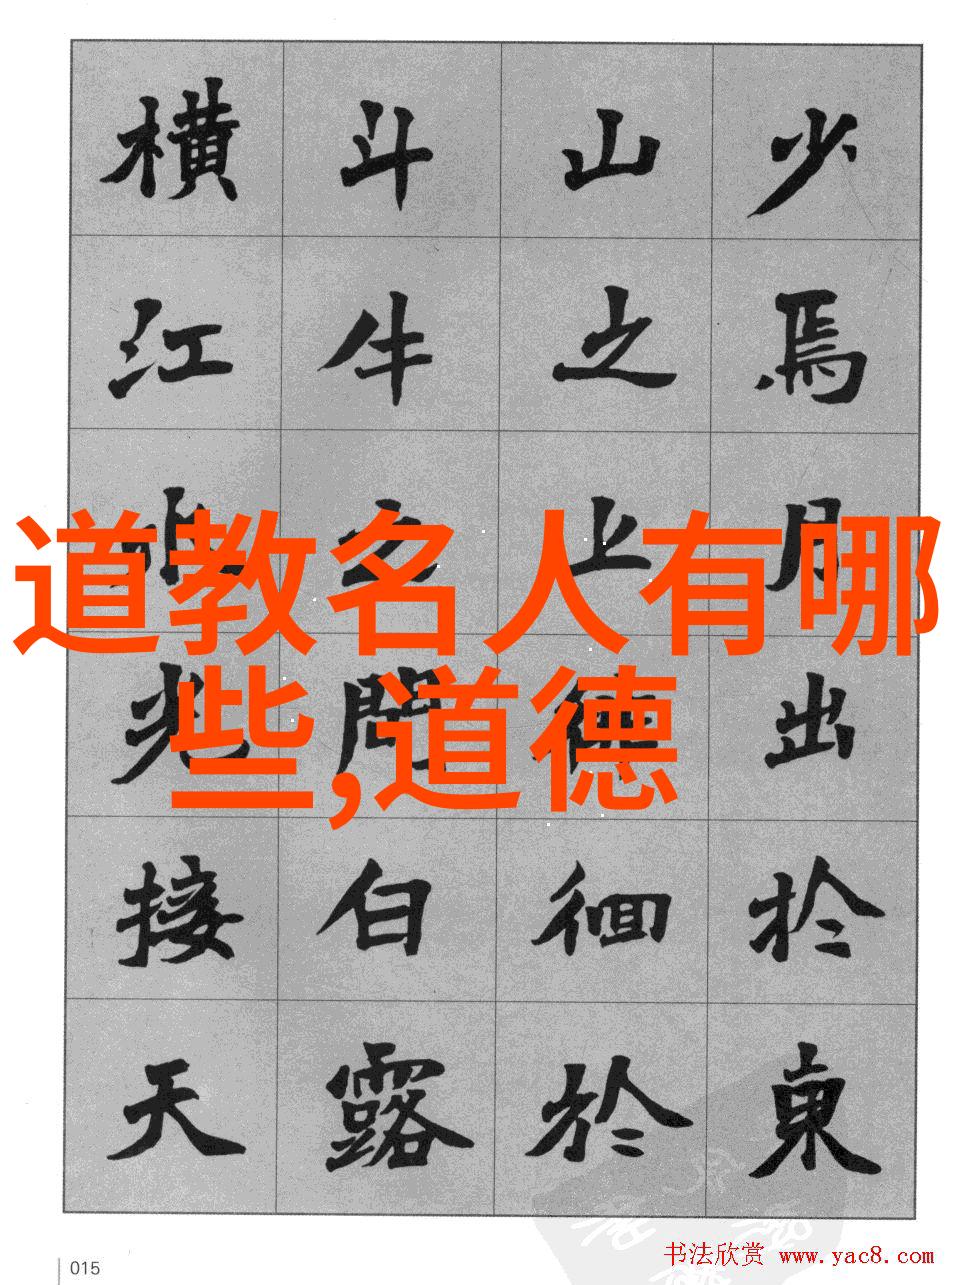 少焉月出於東
山之上徘徊於
斗牛之間白露
橫江水光接天
道教名人有哪
些,道德
015
书法欣赏 www.yac8.com